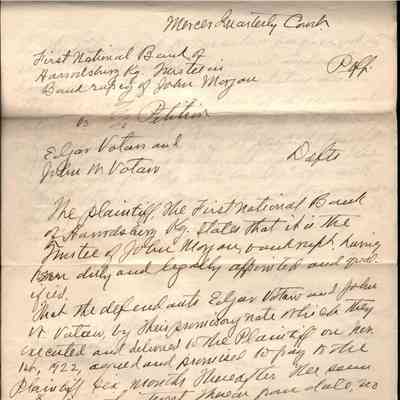 Mercer Quarterly Court
First National Bank of
Harrodsburg Ky. Trustee in
Bankruptcy of John Morgan Plff.
vs Petition
Edgar Votaw and
John W Votaw Defts
The plaintiff, the First National Bank
of Harrodsburg Ky. states that it is the
Trustee of John Morgan, bankrupt, having
been duly and legally appointed and qual-
ified.
That the defendants Edgar Votaw and John
W Votaw, by their promissory note which they
executed and delivered to the Plaintiff on
14, 1922, agreed and promised to pay to the
Plaintiff six months thereafter the sum
date, no